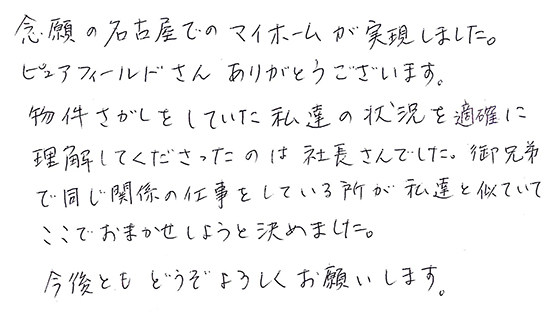 念願の名古屋でのマイホームが実現しました。
ピュアフィールドさん ありがとうございます。
物件さがしをしていた私達の状況を適確に
理解してくださったのは社長さんでした。御兄弟
で同じ関係の仕事をしている所が私達と似ていて
ここでおまかせしようと決めました。
今後とも どうぞよろしくお願いします。